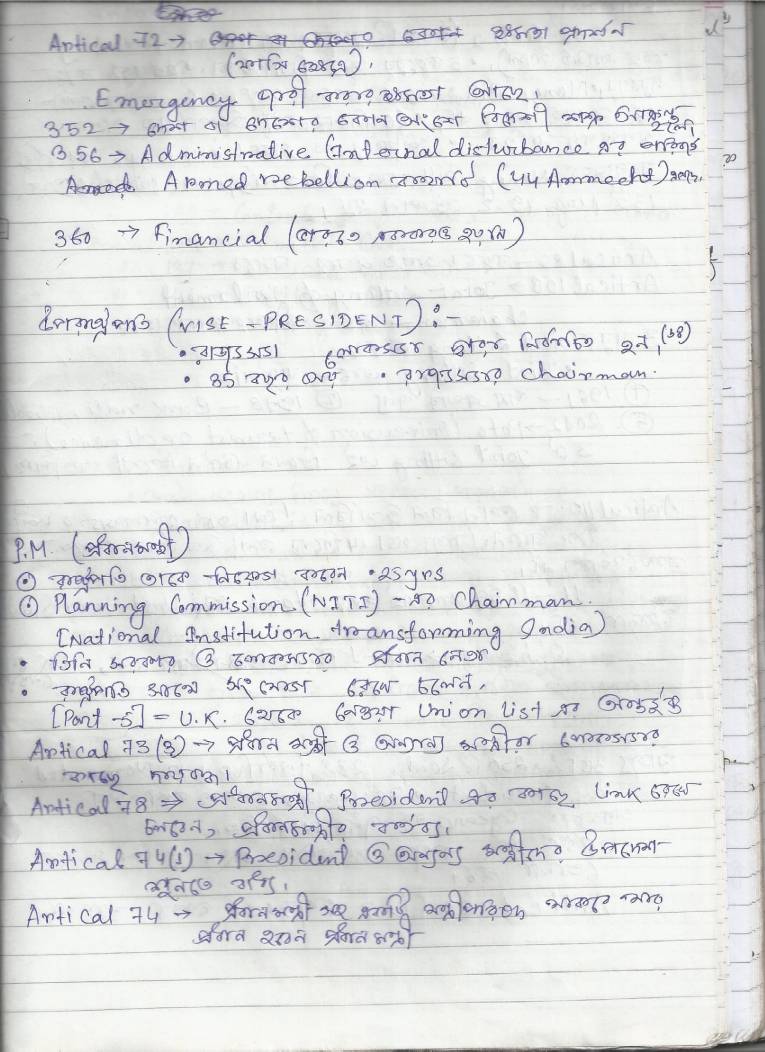 Artical 72 → ক্ষমতা প্রদর্শন
(ফাসি রোধে),
Emergency জারী করার ক্ষমতা আছে,
352 → দেশ বা দেশের কোন অংশে বিদেশী শত্রু আক্রান্ত হলে
356 → Administrative (Internal disturbance এর পরিবর্ত
Armed rebellion কথাটি (44 Ammect)
360 → Financial (ভারতে একবারও হয়নি)
উপরাষ্ট্রপতি (VISE - PRESIDENT) :-
• রাজ্যসভা লোকসভার দ্বারা নির্বাচিত হন,
• 35 বছর বয়স • রাজ্যসভার Chairman.
P.M. (প্রধানমন্ত্রী)
⊙ রাষ্ট্রপতি তাকে নিয়োগ করেন • 25yrs
⊙ Planning Commission (NITI) - এর Chairman.
[National Institution transforming India)
• তিনি সরকার ও লোকসভার প্রধান নেতা
• রাষ্ট্রপতি সাথে সংযোগ রেখে চলেন,
[Part -5] = U.K. থেকে নেওয়া Union List এর অন্তর্ভুক্ত
Artical 73(3) → প্রধান মন্ত্রী ও অন্যান্য মন্ত্রীরা লোকসভার
কাছে দায়বদ্ধ।
Artical 78 ⇒ প্রধানমন্ত্রী President এর কাছে Link রেখে
চলেন, প্রধানমন্ত্রীর কর্তব্য,
Artical 74(1) → President ও অন্যান্য মন্ত্রীদের উপদেশ
শুনতে বাধ্য,
Artical 74 → প্রধানমন্ত্রী সহ একটি মন্ত্রীপরিষদ থাকবে যার
প্রধান হবেন প্রধানমন্ত্রী